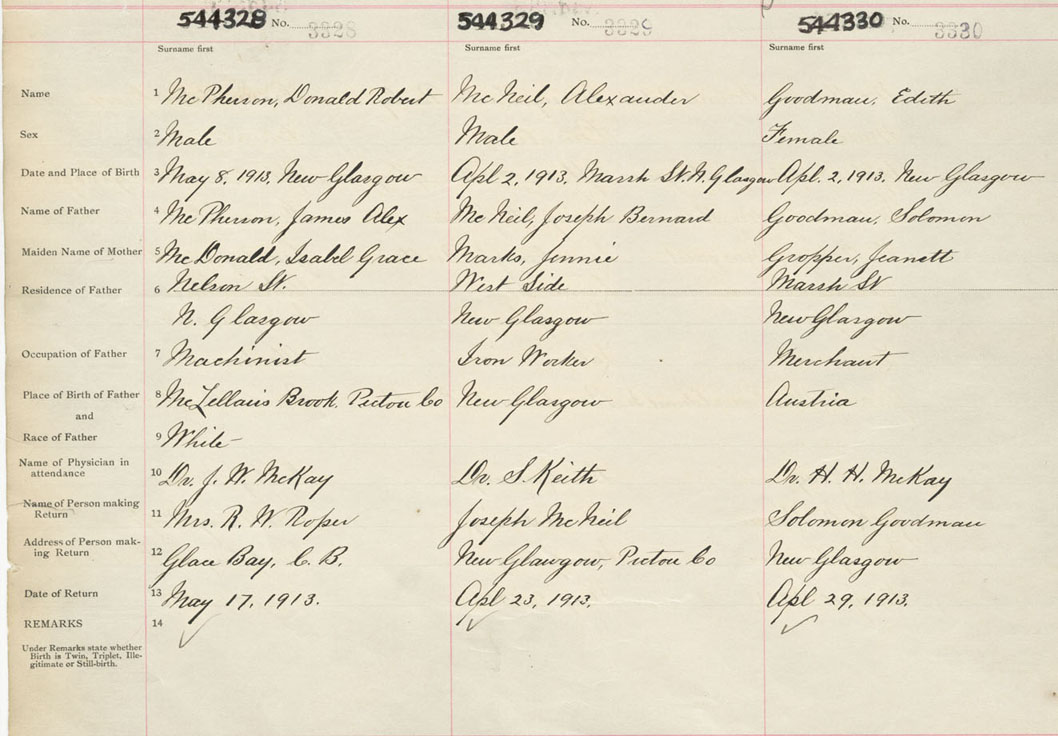 544328 No. 3328 544329 No. 3329 544330 No. 3330
Surname first Surname first Surname first
Name 1 McPherson, Donald Robert McNeil, Alexander Goodman, Edith
Sex 2 Male Male Female
Date and Place of Birth 3 May 8, 1913, New Glasgow Apl 2, 1913, Marsh St. N. Glasgow Apl. 2, 1913, New Glasgow
Name of Father 4 McPherson, James Alex McNeil, Joseph Bernard Goodman, Solomon
Maiden Name of Mother 5 McDonald, Isabel Grace Marks, Jennie Gropper, Jeanett
Residence of Father 6 Nelson St. West Side Marsh St
N. Glasgow New Glasgow New Glasgow
Occupation of Father 7 Machinist Iron Worker Merchant
Place of Birth of Father 8 McLellans Brook, Pictou Co New Glasgow Austria
and
Race of Father 9 White
Name of Physician in
attendance 10 Dr. J. W. McKay Dr. S Keith Dr. H. H. McKay
Name of Person making
Return 11 Mrs. R. W. Roper Joseph McNeil Solomon Goodman
Address of Person mak-
ing Return 12 Glace Bay, C. B. New Glawgow, Pictou Co New Glasgow
Date of Return 13 May 17, 1913. Apl 23, 1913. Apl 29, 1913.
REMARKS 14
Under Remarks state whether
Birth is Twin, Triplet, Ille-
gitimate or Still-birth.